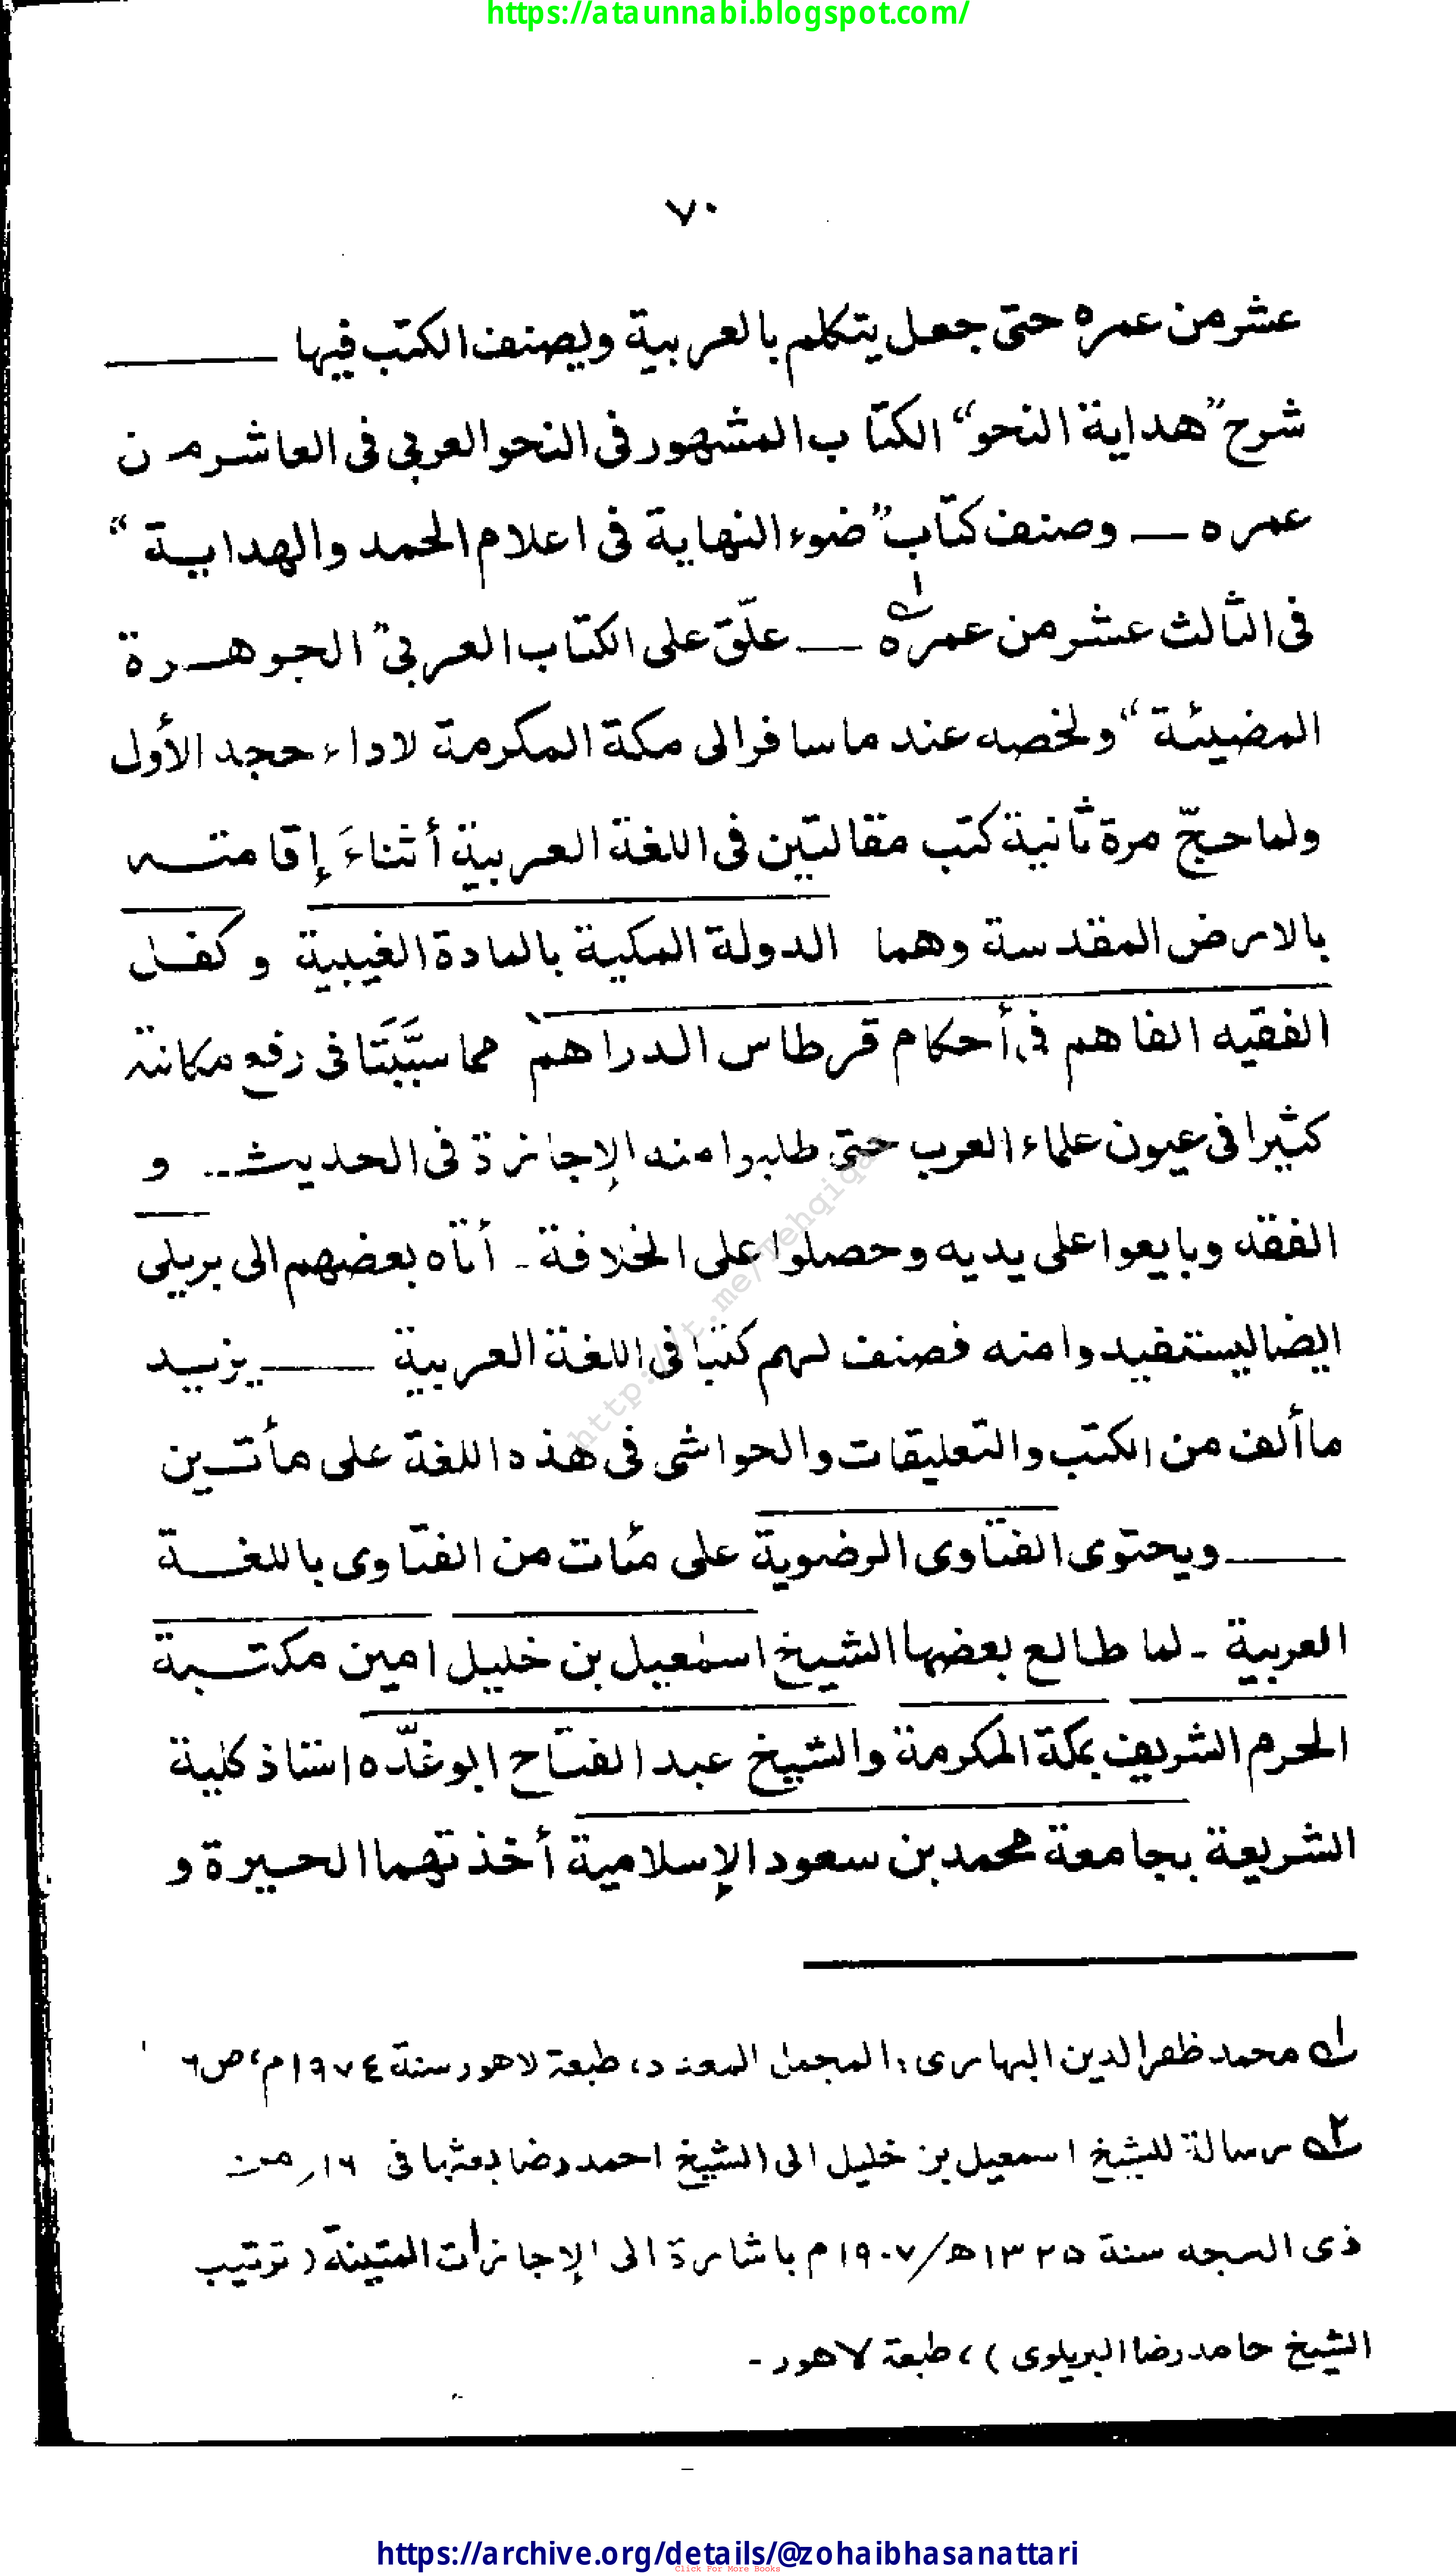 https://ataunnabi.blogspot.com/
٧٠
عشر من عمره حتى جعل يتكلم بالعربية ويصنف الكتب فيها ———
شرح ”هداية النحو“ الكتاب المشهور فى النحو العربى فى العاشر من
عمره — وصنف كتاب ”ضوء النهاية فى اعلام الحمد والهداية“
فى الثالث عشر من عمره ١؎ — علّق على الكتاب العربى ”الجوهرة
المضيئة“ ولخصه عند ما سافر الى مكة المكرمة لاداء حجه الأول
ولما حجّ مرة ثانية كتب مقالتين فى اللغة العربية أثناءَ إقامته
بالارض المقدسة وهما الدولة المكية بالمادة الغيبية و كفل
الفقيه الفاهم فى أحكام قرطاس الدراهم مما سبَّبَتَا فى رفع مكانته
كثيرا فى عيون علماء العرب حتى طلبوا منه الإجازة فى الحديث و
الفقه وبايعوا على يديه وحصلوا على الخلافة ۔ أتاه بعضهم الى بريلى
ايضا ليستفيدوا منه فصنف لهم كتبا فى اللغة العربية ——— يزيد
ما ألف من الكتب والتعليقات والحواشى فى هذه اللغة على مأتين
——— ويحتوى الفتاوى الرضوية على مئات من الفتاوى باللغة
العربية ۔ لما طالع بعضها الشيخ اسمٰعيل بن خليل امين مكتبة
الحرم الشريف بمكة المكرمة والشيخ عبد الفتاح ابو غدّه استاذ كلية
الشريعة بجامعة محمد بن سعود الإسلامية أخذتهما الحيرة و
١؎ محمد ظفر الدين البهارى : المجمل المعدد ، طبعة لاهور سنة ١٩٧٤م ، ص٦
٢؎ رسالة للشيخ اسمعيل بن خليل الى الشيخ احمد رضا بعثها فى ١٦ / من
ذى الحجه سنة ١٣٢٥ھ/١٩٠٧م باشارة الى الإجازات المتينة ( ترتيب
الشيخ حامد رضا البريلوى ) ، طبعة لاهور ۔
http://t.me/Tehqiqat
https://archive.org/details/@zohaibhasanattari
Click For More Books